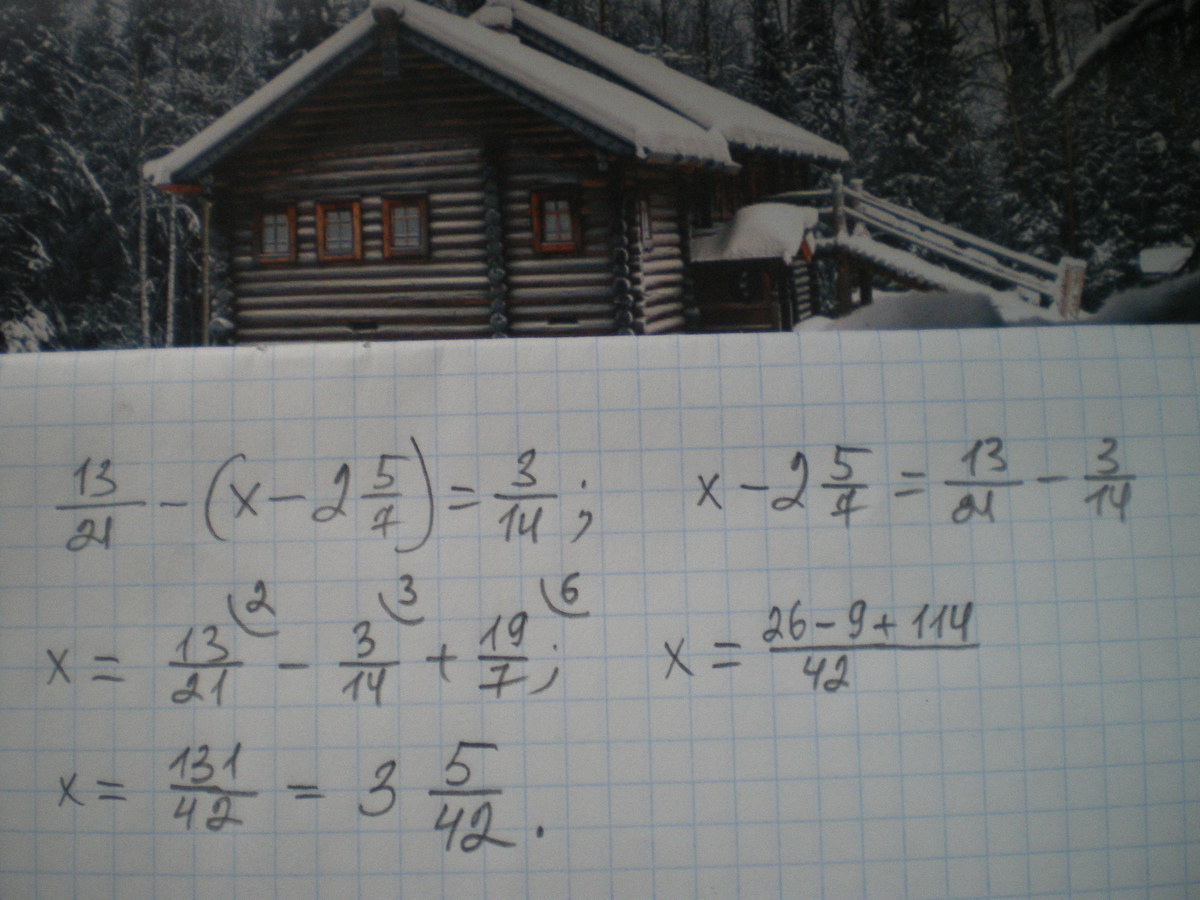 13/21 - (x - 2 5/7) = 3/14; x - 2 5/7 = 13/21 - 3/14
x = 13/21 ⁽² - 3/14 ⁽³ + 19/7 ⁽⁶; x = (26 - 9 + 114)/42
x = 131/42 = 3 5/42.